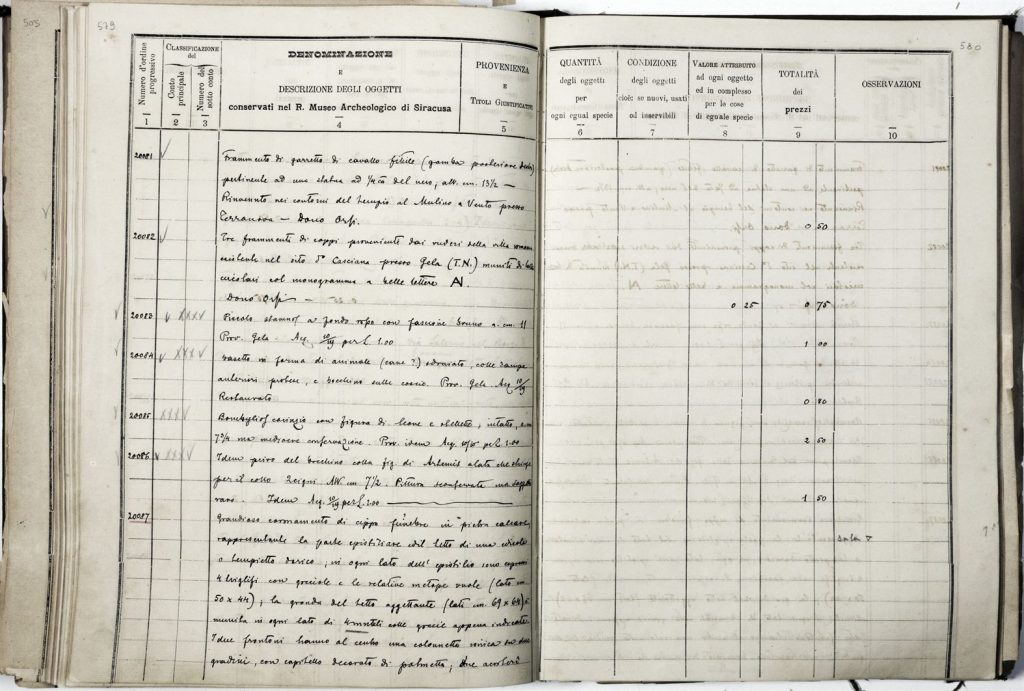 505
579
580
Numero d'ordine progressivo
CLASSIFICAZIONE
del
Conto principale
Numero del sotto conto
DENOMINAZIONE
E
DESCRIZIONE DEGLI OGGETTI
conservati nel R. Museo Archeologico di Siracusa
PROVENIENZA
E
TITOLI GIUSTIFICATIVI
QUANTITÀ
degli oggetti
per
ogni egual specie
CONDIZIONE
degli oggetti
cioè: se nuovi, usati
od inservibili
VALORE ATTRIBUITO
ad ogni oggetto
ed in complesso
per le cose
di eguale specie
TOTALITÀ
dei
prezzi
OSSERVAZIONI
1 2 3 4 5 6 7 8 9 10
20081 Frammento di garretto di cavallo fittile (gamba posteriore
pertinente ad una statua ad 1/4 ca del vero; alt. cm. 13 1/2 —
Rinvenuto nei contorni del tempio al Molino a Vento presso
Terranova — Dono Orsi. 0 50
20082 Tre frammenti di coppi proveniente dai ruderi della villa romana
esistente nel sito Da Casciana presso Gela (T.N.) muniti di bolli
circolari col monogramma a belle lettere
Dono Orsi — 0 25 0 75
20083 Piccolo stamnos a fondo rosso con fascione bruno a. cm. 11
Prov. Gela. Acq. per L. 1.00 1 00
20084 Vasetto in forma di animale (cane ?) sdraiato, colle zampe
anteriori protese, e bocchino sulle coscie. Prov. Gela Acq.
Restaurato 0 80
20085 Bombylios corinzio con figura di leone e intatto, a. cm
7 3/4 ma mediocre conservazione. Prov. idem Acq. per L 2.00 2 50
20086 Idem privo del bocchino colla fig. di Artemis alata che stringe
per il collo 2 cigni Alt. cm 7 1/2. Pittura sconservata ma
raro. Idem Acq. per L. 2.00 1 50
20087 Grandioso coronamento di cippo funebre in pietra calcare
rappresentante la parte epistiliare ed il tetto di una edicola
o tempietto dorico; in ogni lato dell' epistilio sono espressi
4 triglifi con gocciole e le relative metope vuote (lato cm.
50 x 44); la gronda del tetto aggettante (lati cm. 69 x 64) è
munita in ogni lato di 4 mutuli colle goccie appena indicate.
I due frontoni hanno al centro una colonnetta ionica su due
gradini, con capitello decorato di palmetta; due acroteri